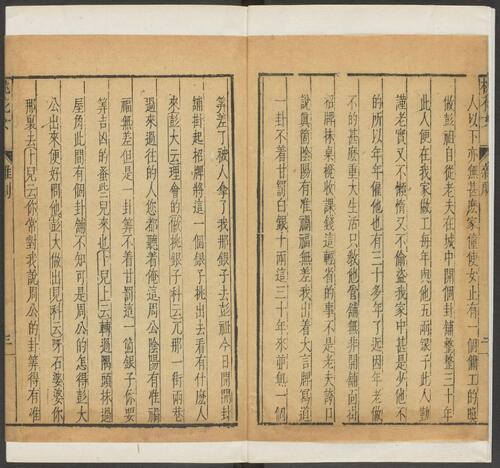 人以下亦無甚麽家僮使女止有一個傭工的喚
做彭祖自從老夫在城中開個卦鋪整整三十年
此人便在我家做工每年與他五兩銀子此人勤
謹老實又不懶惰又不偷盜我家中甚是少他不
的所以年年僱他也有三十多年了近因年老做
不的甚麽重大生活只敎他管鋪無非開鋪面掛
招牌抹桌櫈收課錢這輕省的事不是老夫誇口
說眞箇陰陽有准禍福無差我出着大言牌寫道
一卦不着甘罰白銀十兩這三十年來並無一個
筭差了被人拿了我那銀子去彭祖今日開開卦
鋪掛起招牌將這一個銀子挑出去看有什麽人
來彭大云理會的做挑銀子科云兀那一街兩巷
過來過往的人您都聽着俺這周公陰陽有准禍
福無差但是一卦筭不着甘罰這一箇銀子你要
筭吉凶的蚤些兒來也卜兒上云轉過隅頭抹過
屋角此間有個卦鋪不知可是周公的怎得彭大
公出來便好問他彭大做出見科云呀石婆婆你
那裏去卜兒云你常對我說周公的卦筭得有准